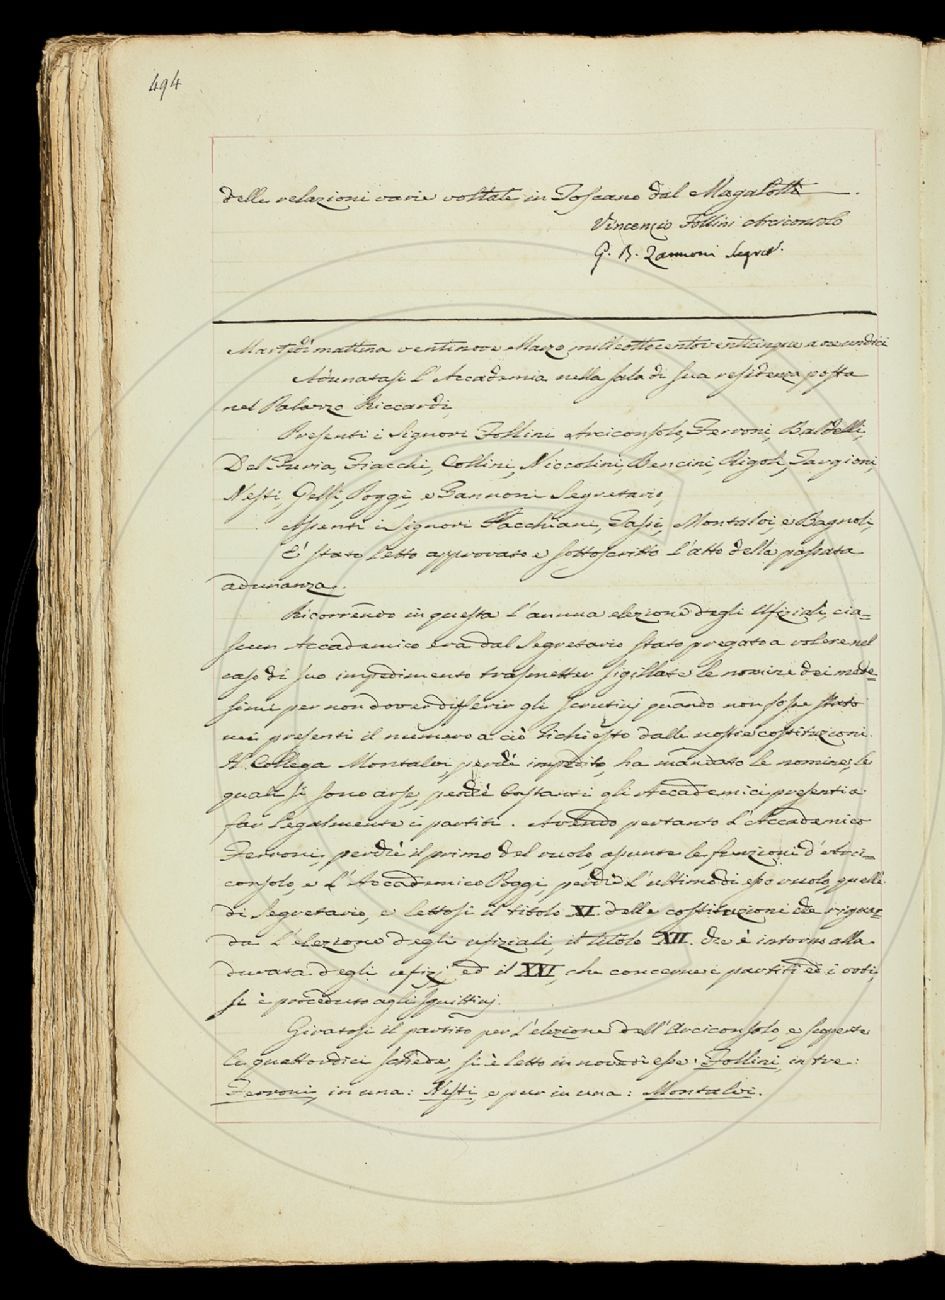 494
delle relazioni varie voltate in Toscano dal Magalotti.
Vincenzio Follini Arciconsolo
G. B. Zannoni Segret.
Martedì mattina ventinove Marzo milleottocentoventicinque a ore undici
Adunatasi l'Accademia nella sala di sua residenza posta
nel Palazzo Riccardi
Presenti i Signori Follini Arciconsolo, Ferroni, Baldelli,
Del Furia, Fiacchi, Collini, Niccolini, Bencini, Rigoli, Targioni,
Nesti, Gelli, Poggi, e Zannoni Segretario,
Assenti i Signori Sacchiani, Tassi, Montalvi, e Bagnoli,
È stato letto approvato e sottoscritto l'atto della passata
adunanza.
Ricorrendo in questa l'annua elezione degli Ufiziali, cia=
scun Accademico era dal Segretario stato pregato a volere nel
caso di suo impedimento trasmetter sigillate le nomine dei mede=
simi per non dover differir gli scrutinj quando non fosse stato
nei presenti il numero a ciò richiesto dalle nostre costituzioni.
Il Collega Montalvi, perchè impedito, ha mandato le nomine, le
quali si sono arse, perchè bastanti gli Accademici presenti a
far legalmente i partiti. Avendo pertanto l'Accademico
Ferroni, perchè il primo del ruolo, assunte le funzioni d'Arci=
consolo, e l'Accademico Poggi, perchè l'ultimo di esso ruolo, quelle
di Segretario, e lettosi il titolo XI. delle costituzioni che riguar=
da l'elezione degli ufiziali, il titolo XII. che è intorno alla
durata degli ufizj ed il XVI, che concerne i partiti ed i voti,
si è proceduto agli squittinj.
Giratosi il partito per l'elezione dell'Arciconsolo e scoperte
le quattordici schede, si è letto in nove di esse: Follini, in tre:
Ferroni, in una: Nesti, e pur in una: Montalvi.